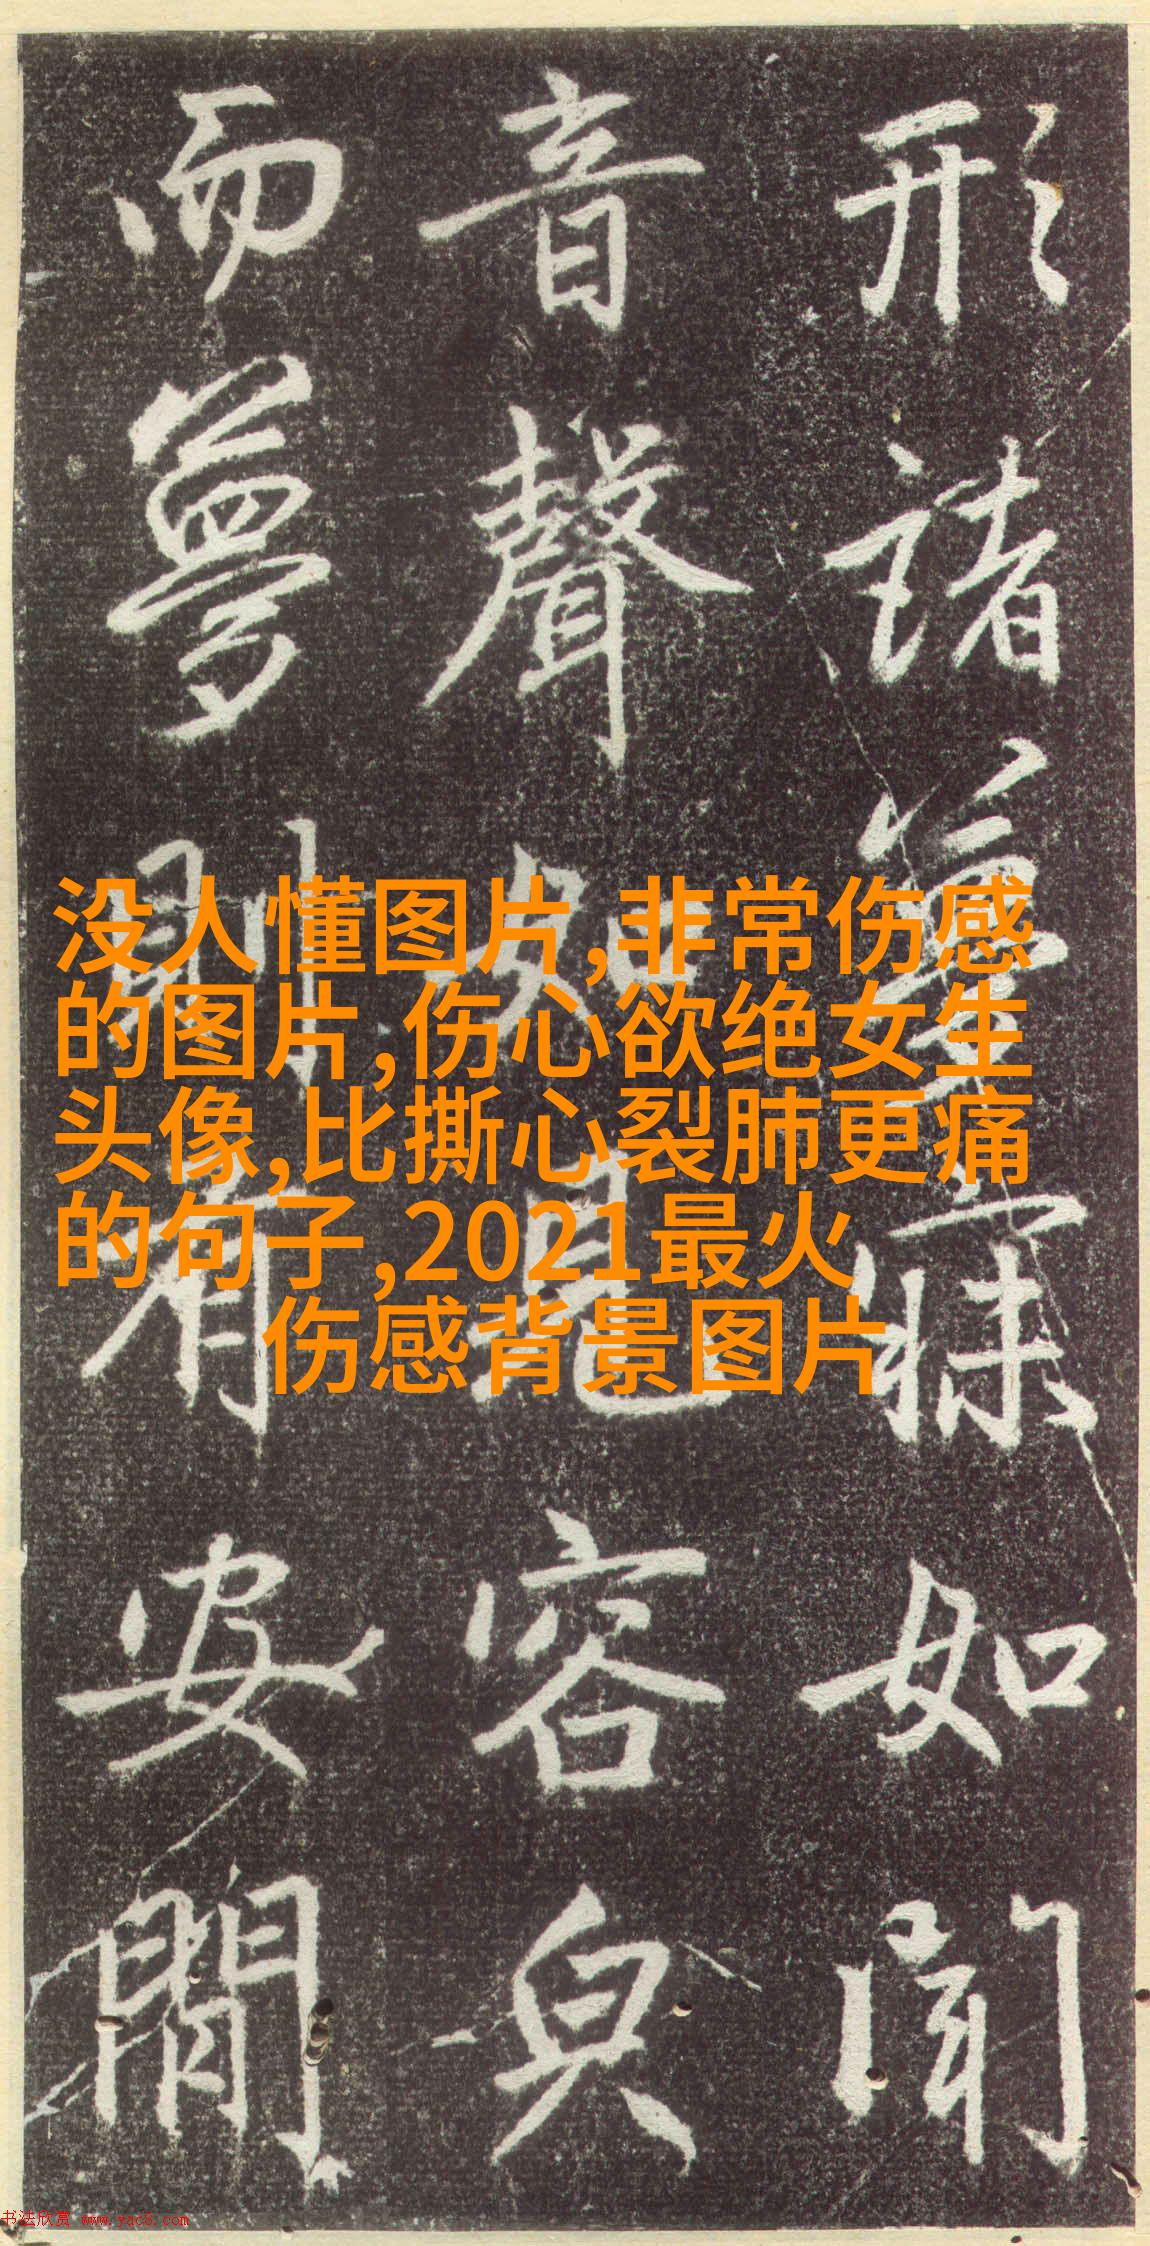 形諸寐如聞
音聲如見容
而夢則有安閒
没人懂图片,非常伤感
的图片,伤心欲绝女生
头像,比撕心裂肺更痛
的句子,2021最火
伤感背景图片
书法欣赏 www.yac8.com